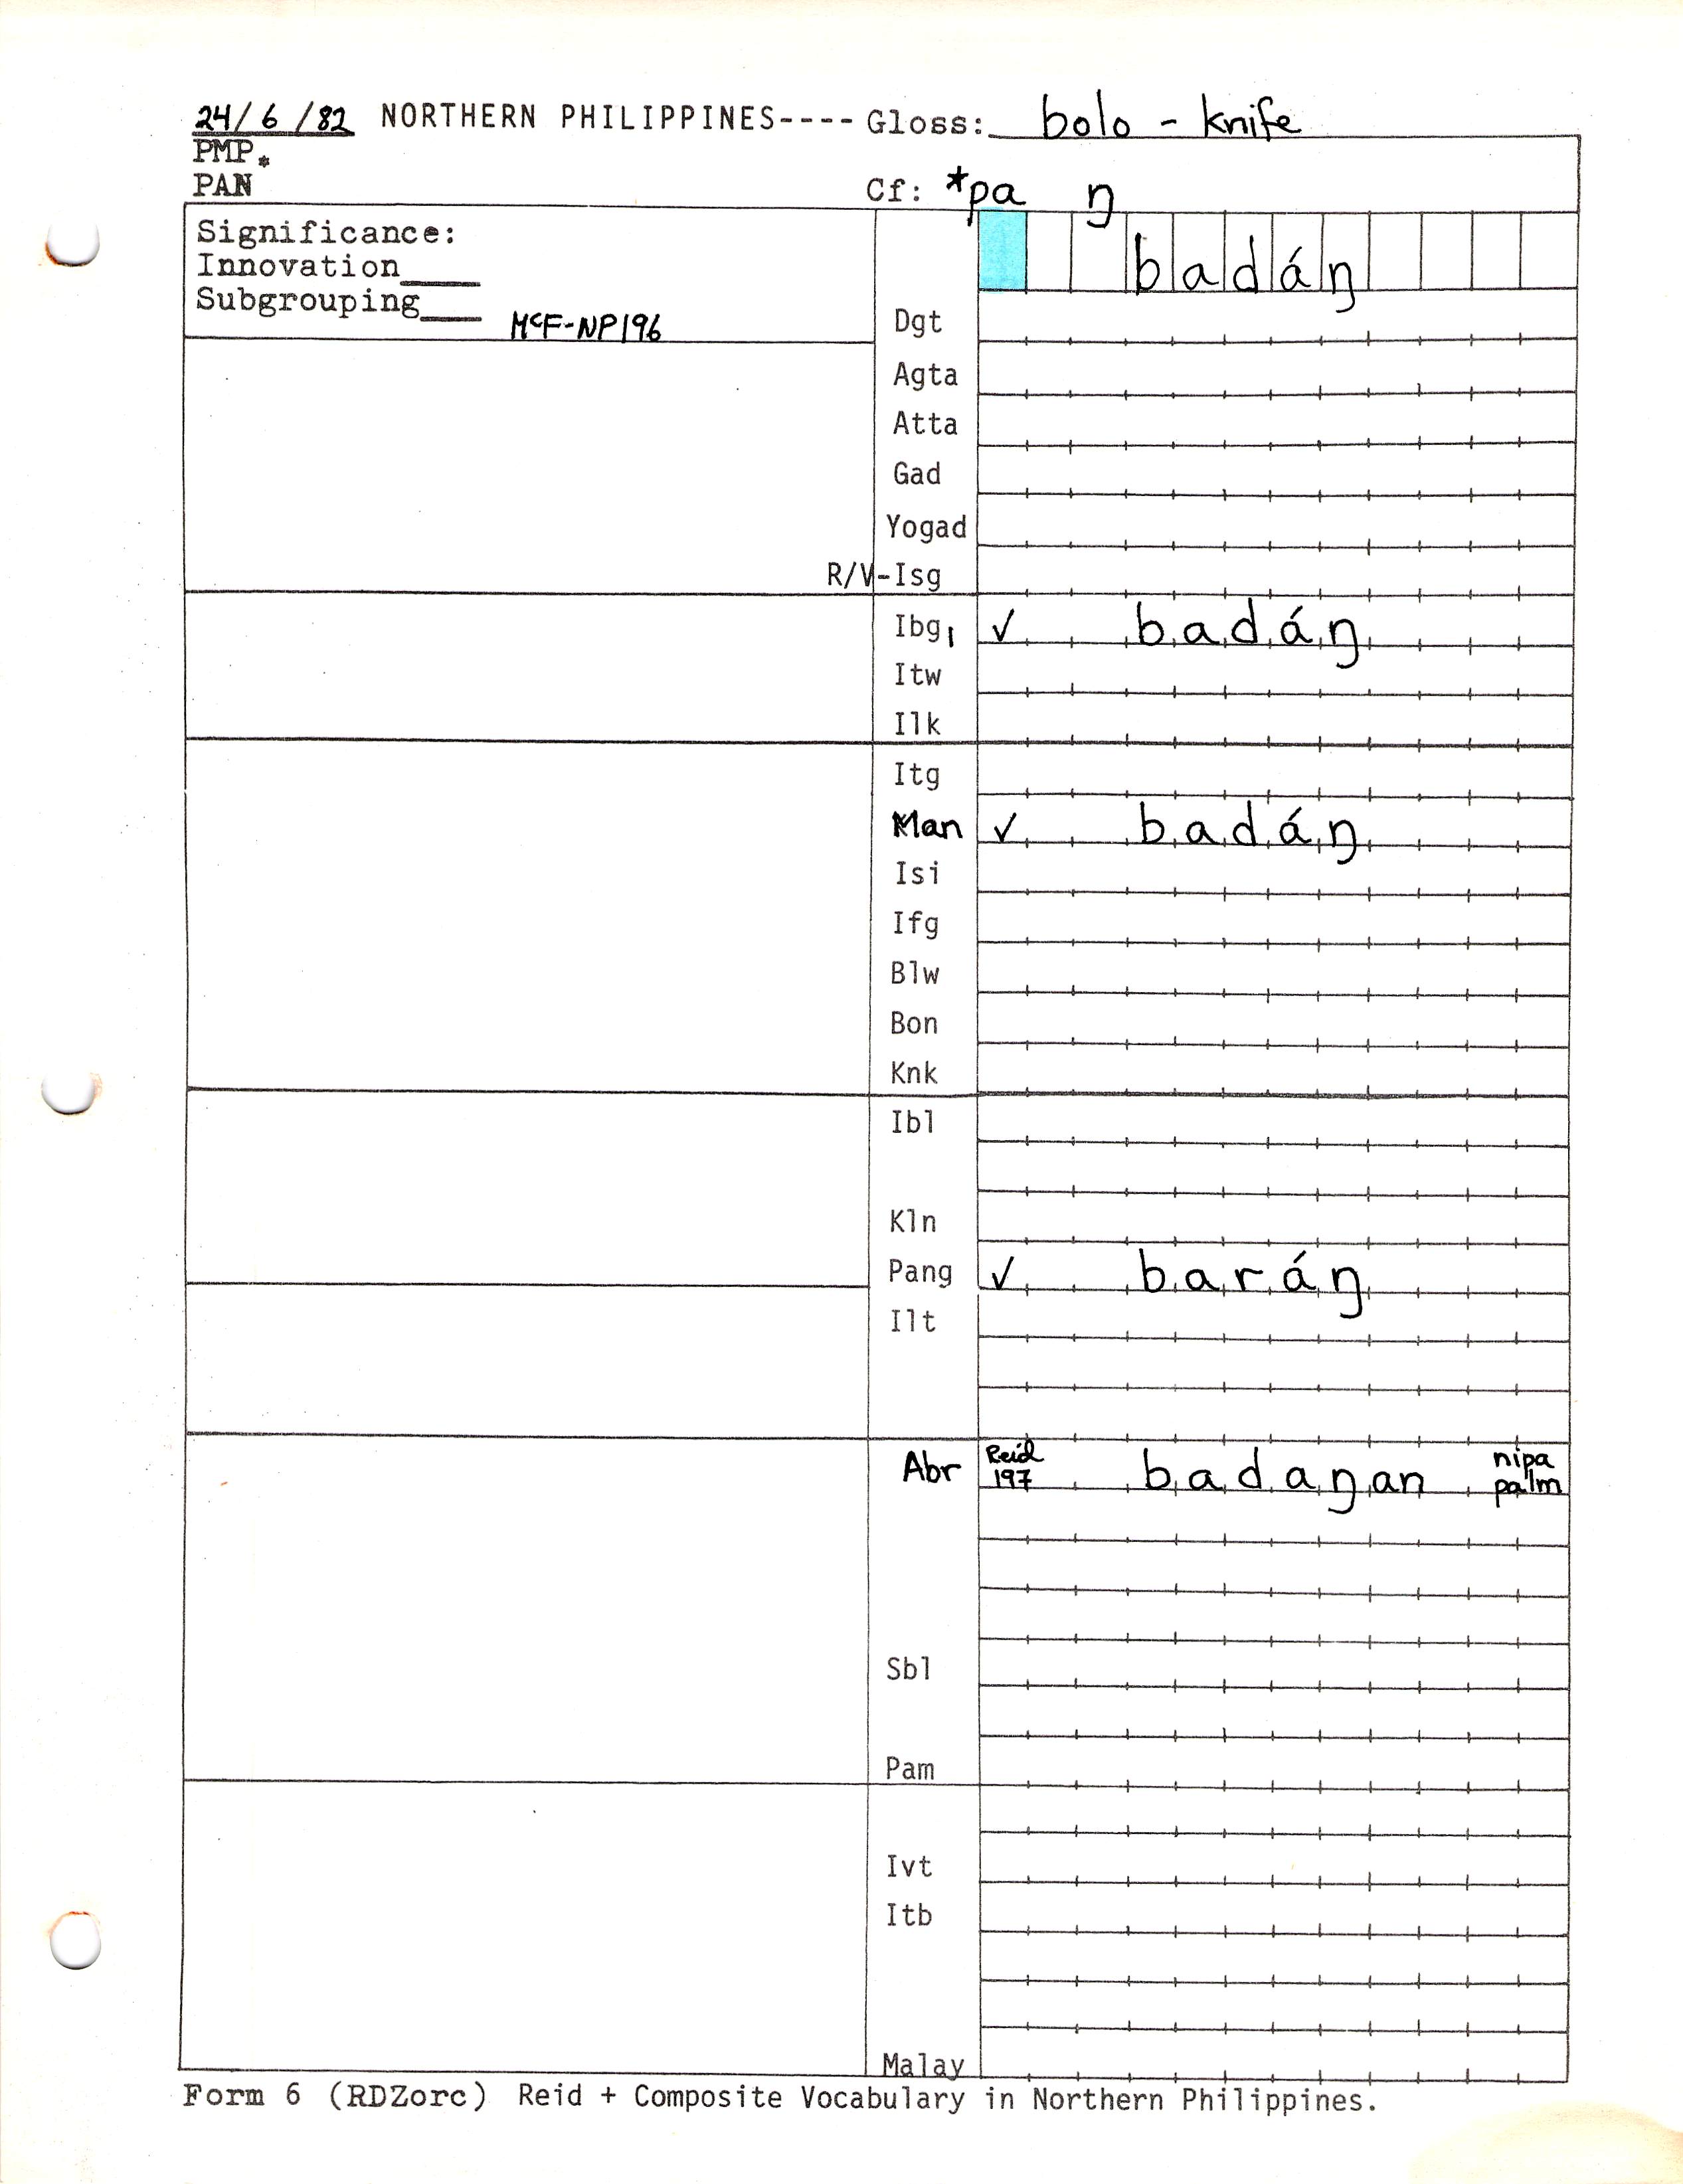 24/6/82 NORTHERN PHILIPPINES---- Gloss: bolo - knife
PMP*
PAN Cf: *pa ŋ
Significance:
Innovation____
Subgrouping___ McF-NP196
badáŋ
Dgt
Agta
Atta
Gad
Yogad
R/V-Isg
Ibg₁ ✓ badáŋ
Itw
Ilk
Itg
Man ✓ badáŋ
Isi
Ifg
Blw
Bon
Knk
Ibl
Kln
Pang ✓ baráŋ
Ilt
Abr Reid 197 badaŋan nipa palm
Sbl
Pam
Ivt
Itb
Malay
Form 6 (RDZorc) Reid + Composite Vocabulary in Northern Philippines.